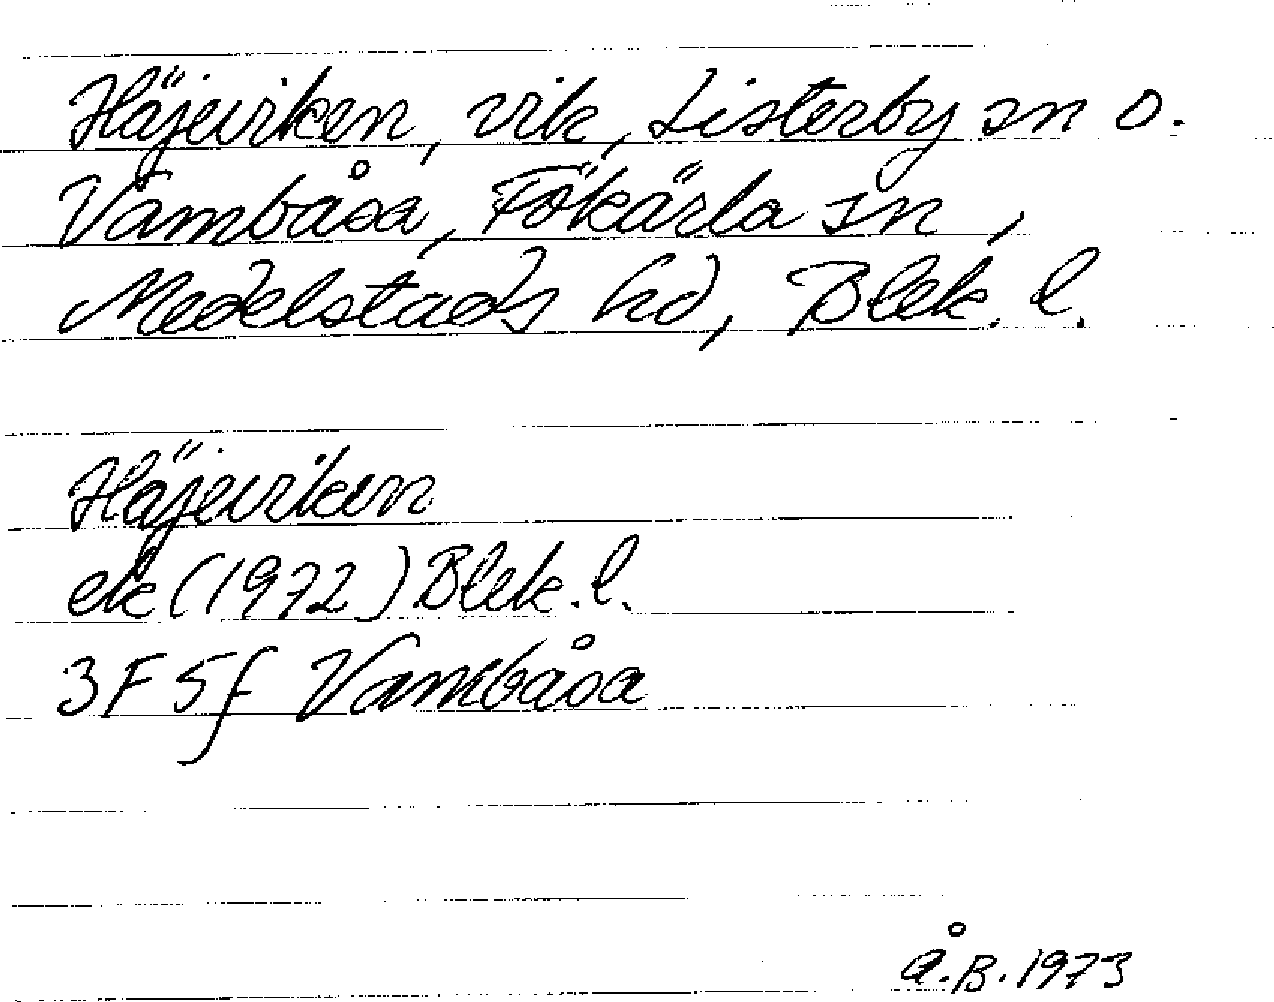 Häjeviken, vik, Listerby sn o.
Vambåsa, Fökärla sn,
Medelstads hd, Blek. l.
Häjeviken
ek (1972) Blek. l.
3F 5f Vambåsa
Å.B. 1973